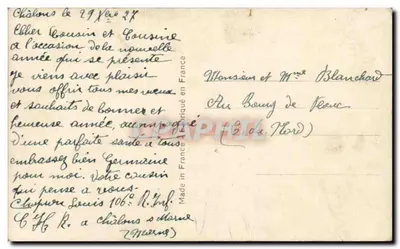 Châlons le 29 Xbre 27
Cher Cousin et Cousine
a l'occasion de la nouvelle
année qui se présente
je viens avec plaisir
vous offrir tous mes vœux
et souhaits de bonne et
heureuse année, au
d'une parfaite santé a tous
embrassez bien Germaine
pour moi. Votre cousin
qui pense a vous.
Louis 106e R. Inf.
C. H. R. a Châlons s Marne
(Marne)
Made in France
Fabriqué en France
Monsieur et Mme Blanchard
Au Bourg de
(C. du Nord)